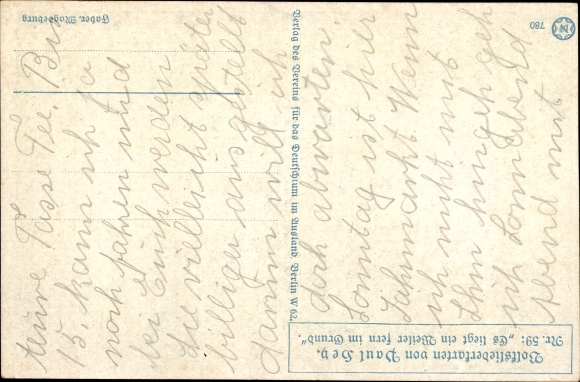 Volksliederkarten von Paul Hey.
Nr. 59: „Es liegt ein Weiler fern im Grund“.
Verlag des Vereins für das Deutschtum im Ausland Berlin W 62.
780
Faber, Magdeburg
teure Tasse Tee. Bis
5. kann ich ja
noch fahren und
bei Euch werden
Sie vielleicht später
billiger ausgestellt
darum will ich
doch abwarten.
Sonntag ist hier
Jahrmarkt. Wenn
ich nicht mit
hingeh, geh
ich Sonnabend
Abend mit